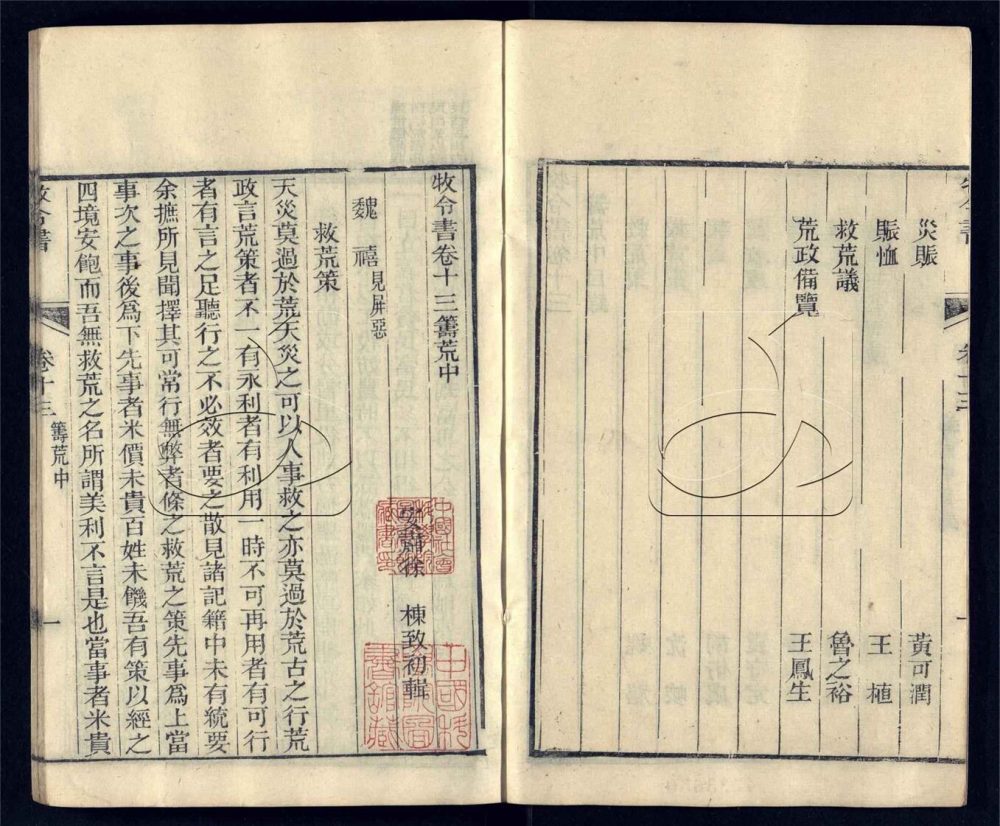 災賑　黃可潤
賑恤　王　植
救荒議　魯之裕
荒政備覽　王鳳生
牧令書卷十三籌荒中
安肅徐　棟致初輯
魏　禧見屏惡
救荒策
天災莫過於荒天災之可以人事救之亦莫過於荒古之行荒
政言荒策者不一有永利者有利用一時不可再用者有可行
者有言之足聽行之不必效者要之散見諸記籍中未有統要
余摭所見聞擇其可常行無弊者條之救荒之策先事爲上當
事次之事後爲下先事者米價未貴百姓未饑吾有策以經之
四境安飽而吾無救荒之名所謂美利不言是也當事者米貴
牧令書　卷十三　籌荒中　一